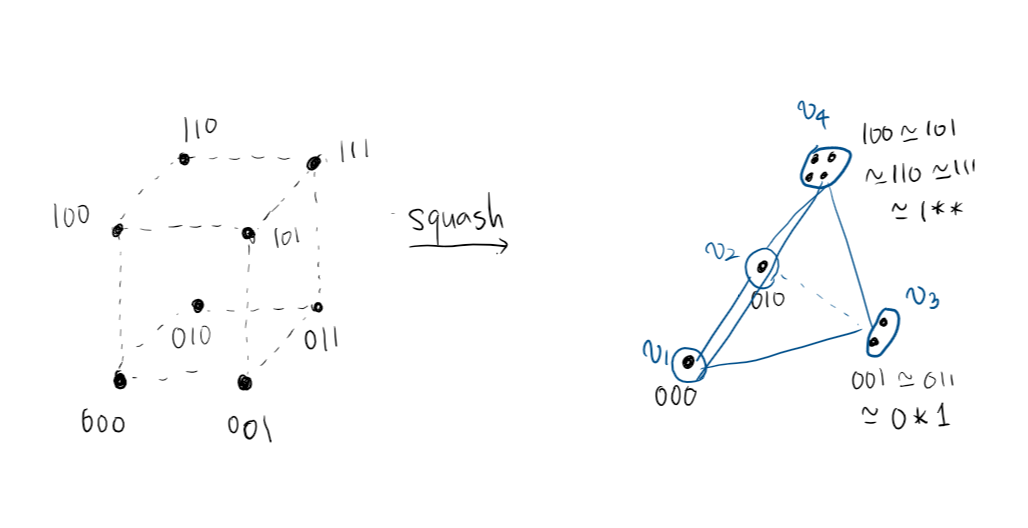 110
111
100
101
010
011
000
001
squash
v4
100 ≃ 101
≃ 110 ≃ 111
≃ 1**
v2
010
v3
v1
000
001 ≃ 011
≃ 0*1